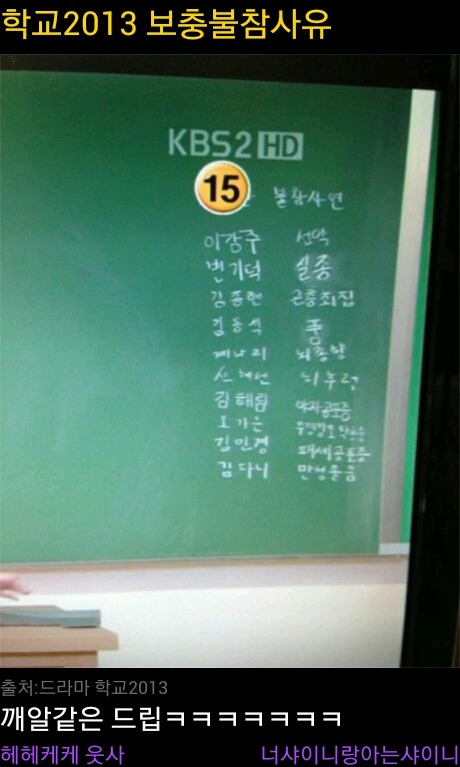 학교2013 보충불참사유
KBS2 HD
15 불참사연
이강주 선약
변기덕 실종
곤충채집
김동석 풍
계나리 뇌종양
신혜선
김해림 야자공포증
오가은
김민경 폐쇄공포증
김다니 만성졸음
출처:드라마 학교2013
깨알같은 드립ㅋㅋㅋㅋㅋㅋㅋ
헤헤케케 웃사 너샤이니랑아는샤이니